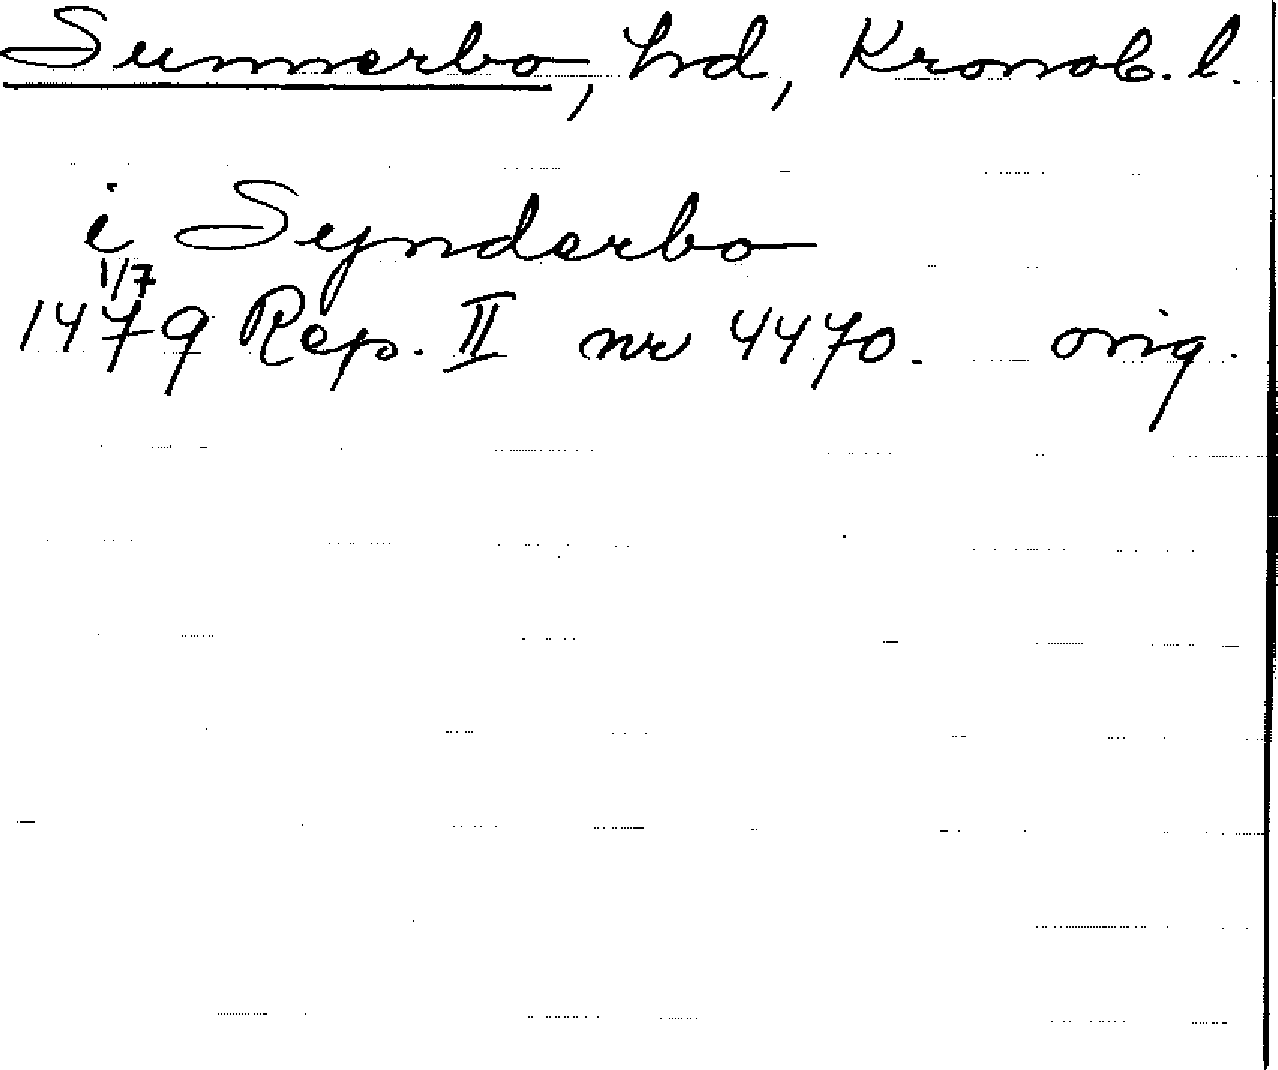 Sunnerbo, hd, Kronob. l.
i Synderbo
1/7
1479 Rep. II nr 4470. orig.